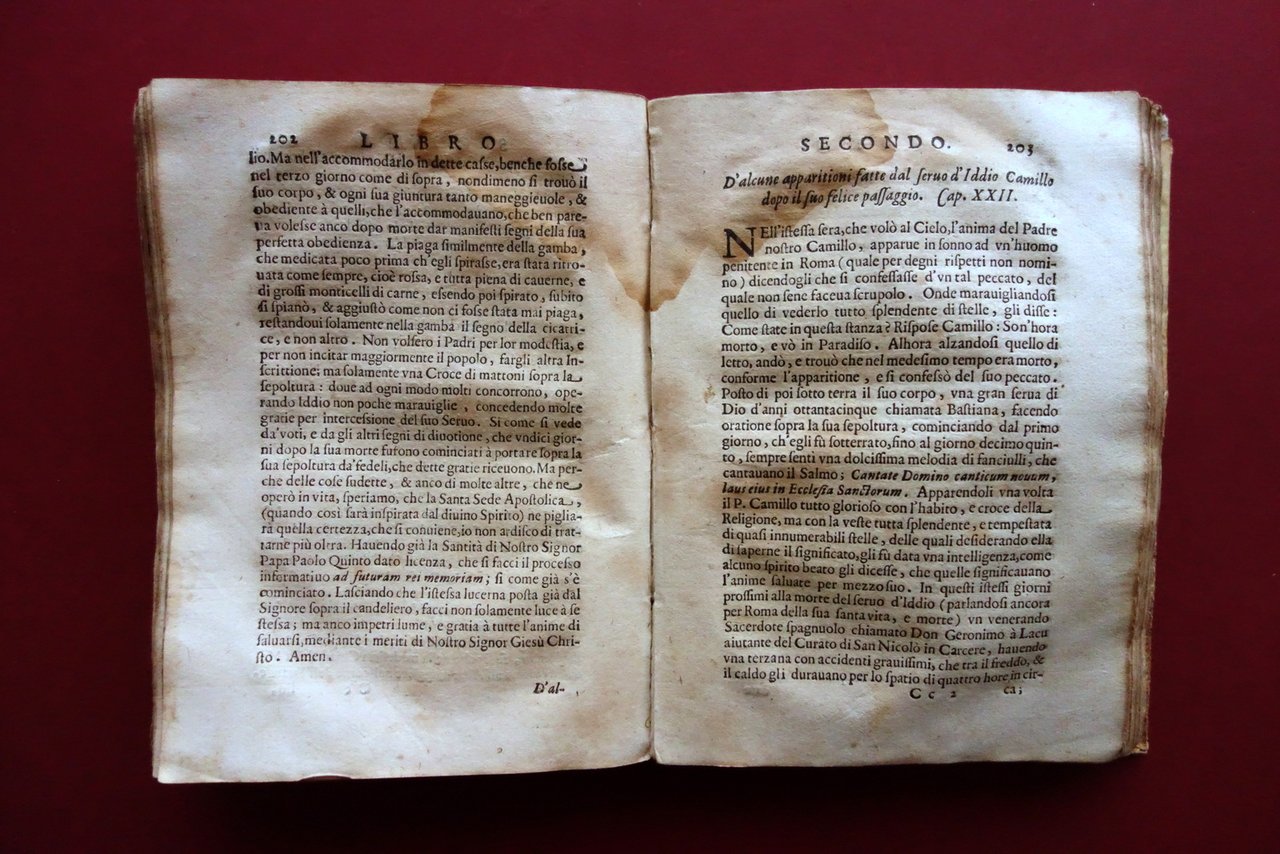 202 LIBRO
lio. Ma nell'accommodarlo in dette casse, benche fosse
nel terzo giorno come di sopra, nondimeno si trouò il
suo corpo, & ogni sua giuntura tanto maneggieuole, &
obediente à quelli, che l'accommodauano, che ben pare-
ua volesse anco dopo morte dar manifesti segni della sua
perfetta obedienza. La piaga similmente della gamba,
che medicata poco prima ch'egli spirasse, era stata ritro-
uata come sempre, cioè rossa, e tutta piena di cauerne, e
di grossi monticelli di carne, essendo poi spirato, subito
si spianò, & aggiustò come non ci fosse stata mai piaga,
restandoui solamente nella gamba il segno della cicatri-
ce, e non altro. Non volsero i Padri per lor modestia, e
per non incitar maggiormente il popolo, fargli altra In-
scrittione; ma solamente vna Croce di mattoni sopra la
sepoltura: doue ad ogni modo molti concorrono, ope-
rando Iddio non poche marauiglie, concedendo molte
gratie per intercessione del suo Seruo. Si come si vede
da'voti, e da gli altri segni di diuotione, che vndici gior-
ni dopo la sua morte fufono cominciati à portare sopra la
sua sepoltura da'fedeli, che dette gratie riceuono. Ma per-
che delle cose sudette, & anco di molte altre, che ne
operò in vita, speriamo, che la Santa Sede Apostolica,
(quando così sarà inspirata dal diuino Spirito) ne piglia-
rà quella certezza, che si conuiene, io non ardisco di trat-
tarne più oltra. Hauendo già la Santità di Nostro Signor
Papa Paolo Quinto dato licenza, che si facci il processo
informatiuo ad futuram rei memoriam; si come già s'è
cominciato. Lasciando che l'istessa lucerna posta già dal
Signore sopra il candeliero, facci non solamente luce à se
stessa; ma anco impetri lume, e gratia à tutte l'anime di
saluarsi, mediante i meriti di Nostro Signor Giesù Chri-
sto. Amen.
D'al-
SECONDO. 203
D'alcune apparitioni fatte dal seruo d'Iddio Camillo
dopo il suo felice passaggio. Cap. XXII.
NEll'istessa sera, che volò al Cielo, l'anima del Padre
nostro Camillo, apparue in sonno ad vn'huomo
penitente in Roma (quale per degni rispetti non nomi-
no) dicendogli che si confessasse d'vn tal peccato, del
quale non sene faceua scrupolo. Onde marauigliandosi
quello di vederlo tutto splendente di stelle, gli disse:
Come state in questa stanza? Rispose Camillo: Son'hora
morto, e vò in Paradiso. Alhora alzandosi quello di
letto, andò, e trouò che nel medesimo tempo era morto,
conforme l'apparitione, e si confessò del suo peccato.
Posto di poi sotto terra il suo corpo, vna gran serua di
Dio d'anni ottantacinque chiamata Bastiana, facendo
oratione sopra la sua sepoltura, cominciando dal primo
giorno, ch'egli fù sotterrato, sino al giorno decimo quin-
to, sempre sentì vna dolcissima melodia di fanciulli, che
cantauano il Salmo; Cantate Domino canticum nouum,
laus eius in Ecclesia Sanctorum. Apparendoli vna volta
il P. Camillo tutto glorioso con l'habito, e croce della
Religione, ma con la veste tutta splendente, e tempestata
di quasi innumerabili stelle, delle quali desiderando ella
di saperne il significato, gli fù data vna intelligenza, come
alcuno spirito beato gli dicesse, che quelle significauano
l'anime saluate per mezzo suo. In questi istessi giorni
prossimi alla morte del seruo d'Iddio (parlandosi ancora
per Roma della sua santa vita, e morte) vn venerando
Sacerdote spagnuolo chiamato Don Geronimo à Lacu
aiutante del Curato di San Nicolò in Carcere, hauendo
vna terzana con accidenti grauissimi, che tra il freddo, &
il caldo gli durauano per lo spatio di quattro hore in cir-
Cc 2 ca;